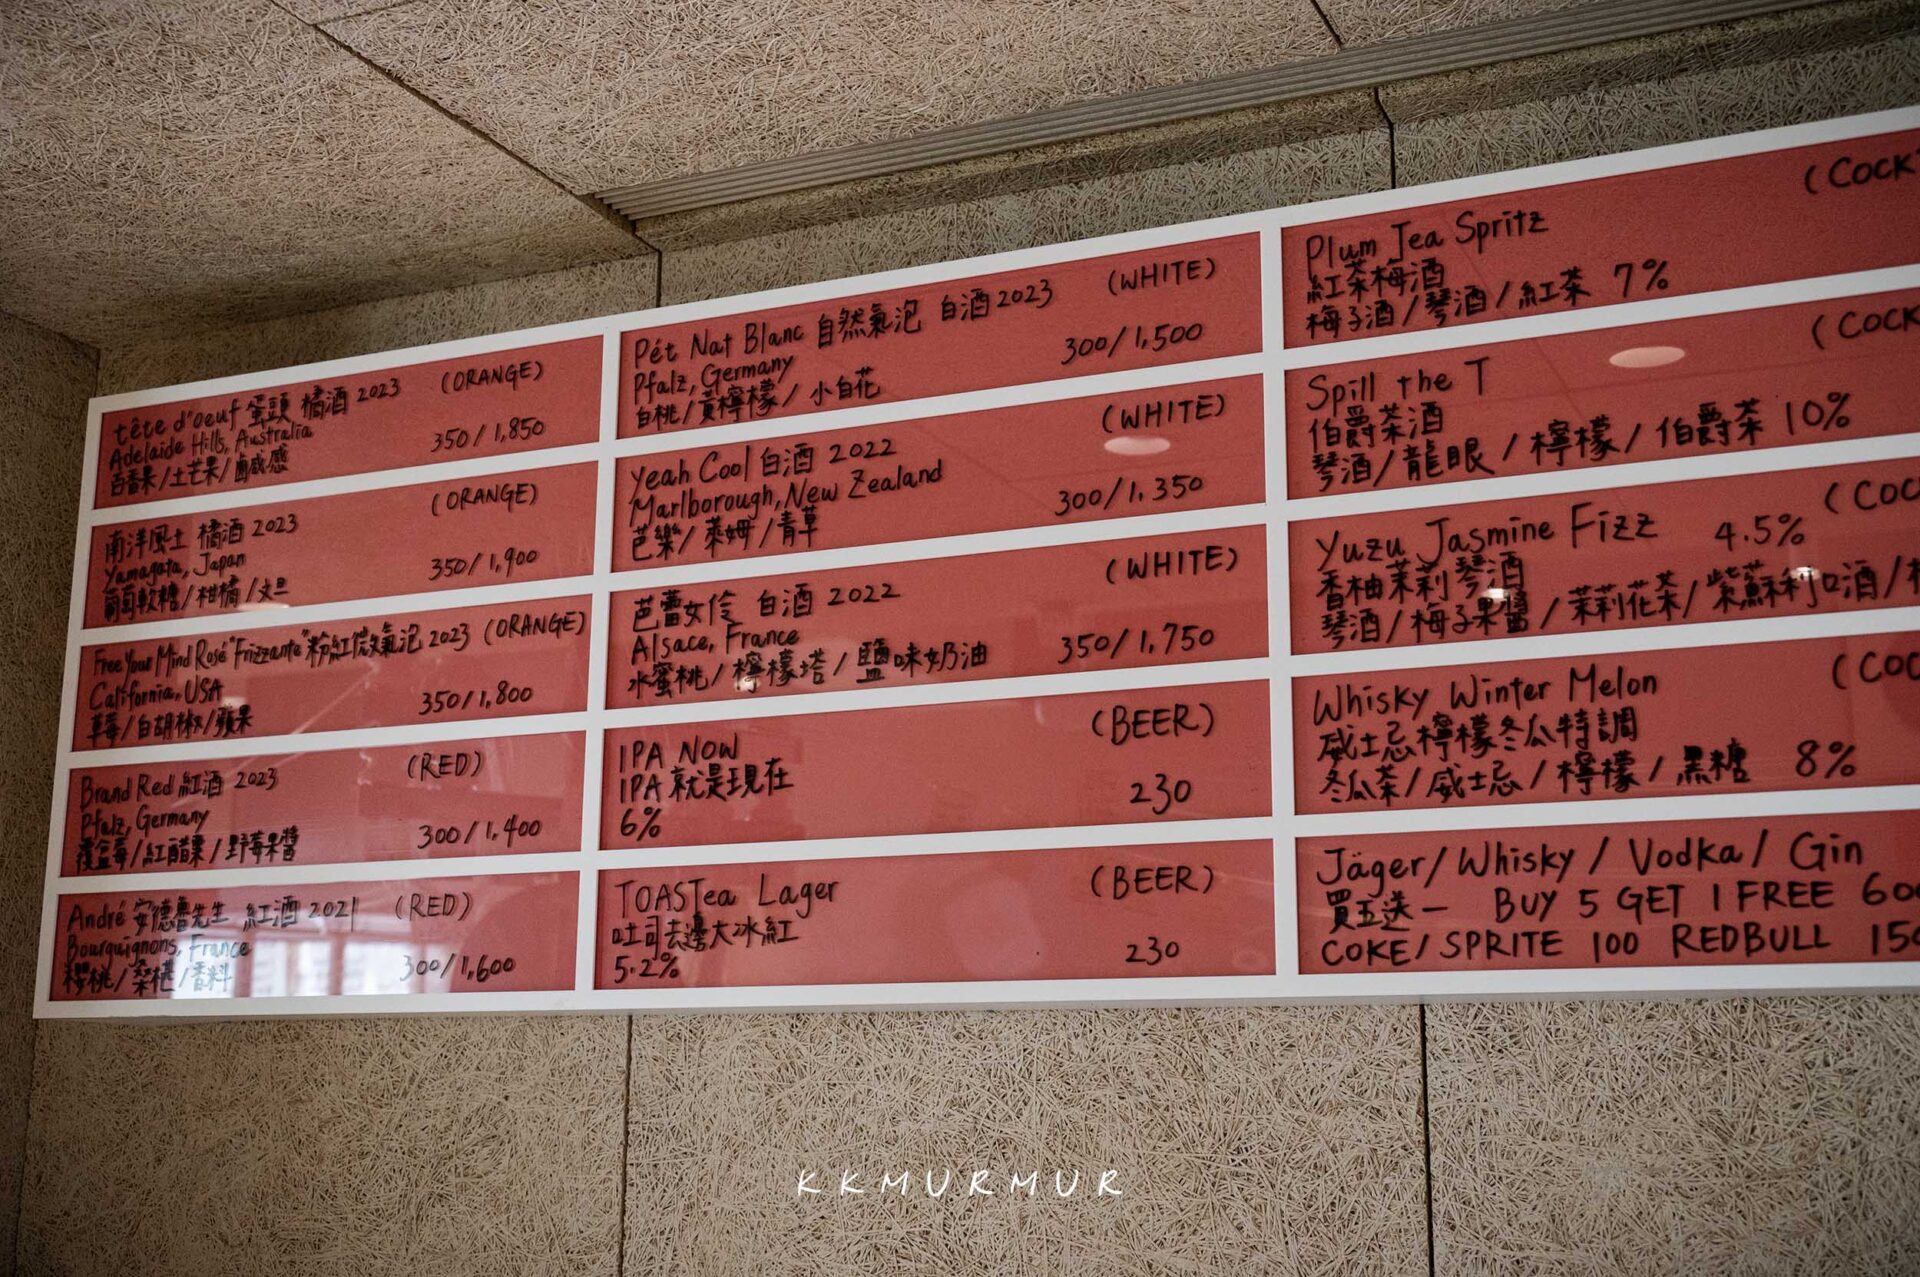 tête d'oeuf 蛋頭 橘酒 2023 (ORANGE)
Adelaide Hills, Australia
百香果/土芒果/鹹感 350/1,850
南洋風土 橘酒 2023 (ORANGE)
Yamagata, Japan
葡萄軟糖/柑橘/文旦 350/1,900
Free Your Mind Rosé "Frizzante" 粉紅微氣泡 2023 (ORANGE)
California, USA
草莓/白胡椒/蘋果 350/1,800
Brand Red 紅酒 2023 (RED)
Pfalz, Germany
覆盆莓/紅醋栗/野莓果醬 300/1,400
André 安德魯先生 紅酒 2021 (RED)
Bourguignons, France
櫻桃/桑椹/香料 300/1,600
Pét Nat Blanc 自然氣泡 白酒 2023 (WHITE)
Pfalz, Germany
白桃/黃檸檬/小白花 300/1,500
Yeah Cool 白酒 2022 (WHITE)
Marlborough, New Zealand
芭樂/萊姆/青草 300/1,350
芭蕾女伶 白酒 2022 (WHITE)
Alsace, France
水蜜桃/檸檬塔/鹽味奶油 350/1,750
IPA NOW (BEER)
IPA 就是現在
6% 230
TOASTea Lager (BEER)
吐司去邊大冰紅
5.2% 230
(COCK
Plum Tea Spritz
紅茶梅酒
梅子酒/琴酒/紅茶 7%
Spill the T (COCK
伯爵茶酒
琴酒/龍眼/檸檬/伯爵茶 10%
Yuzu Jasmine Fizz 4.5% (COC
香柚茉莉琴酒
琴酒/梅子果醬/茉莉花茶/紫蘇利口酒/
Whisky Winter Melon (COC
威士忌檸檬冬瓜特調
冬瓜茶/威士忌/檸檬/黑糖 8%
Jäger/Whisky/Vodka/Gin
買五送一 BUY 5 GET 1 FREE 600
COKE/SPRITE 100 REDBULL 150
KKMURMUR